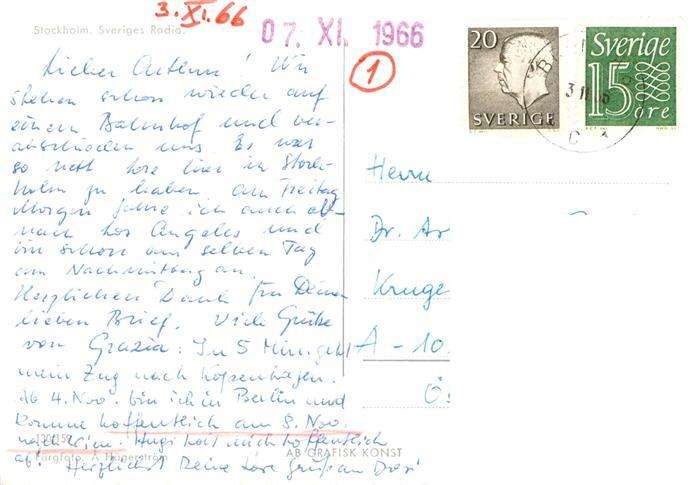 3.XI.66
Stockholm. Sveriges Radio
07. XI. 1966
1
20
SVERIGE
Sverige
15
öre
Lieber! Wir
stehen schon wieder auf
einem Bahnhof und ver-
abschieden uns Es war
so nett Lore hier in Stock-
holm zu haben. Am Freitag
Morgen fahre ich auch ab
nach Los Angeles und
bin schon am selben Tag
am Nachmittag an.
Herzlichen Dank für Deinen
lieben Brief. Viele Grüße
von Grazia. In 5 Min. geht
mein Zug nach Kopenhagen.
Ab 4. Nov. bin ich in Berlin und
komme hoffentlich am 8. Nov.
nach Wien. Hugi holt mich hoffentlich
ab! Herzlichst Deine Lore
120/159
Färgfoto. A
AB GRAFISK KONST
Herrn
Dr. Ar
Kruge
A - 10
Ös